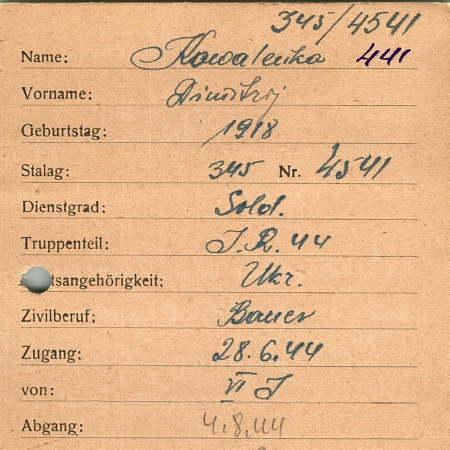 345/4541
Name: Kowalenko 441
Vorname: Dimitrij
Geburtstag: 1918
Stalag: 345 Nr. 4541
Dienstgrad: Sold.
Truppenteil: J.R. 44
tsangehörigkeit: Ukr.
Zivilberuf: Bauer
Zugang: 28.6.44
von: VI J
Abgang: 4.8.44